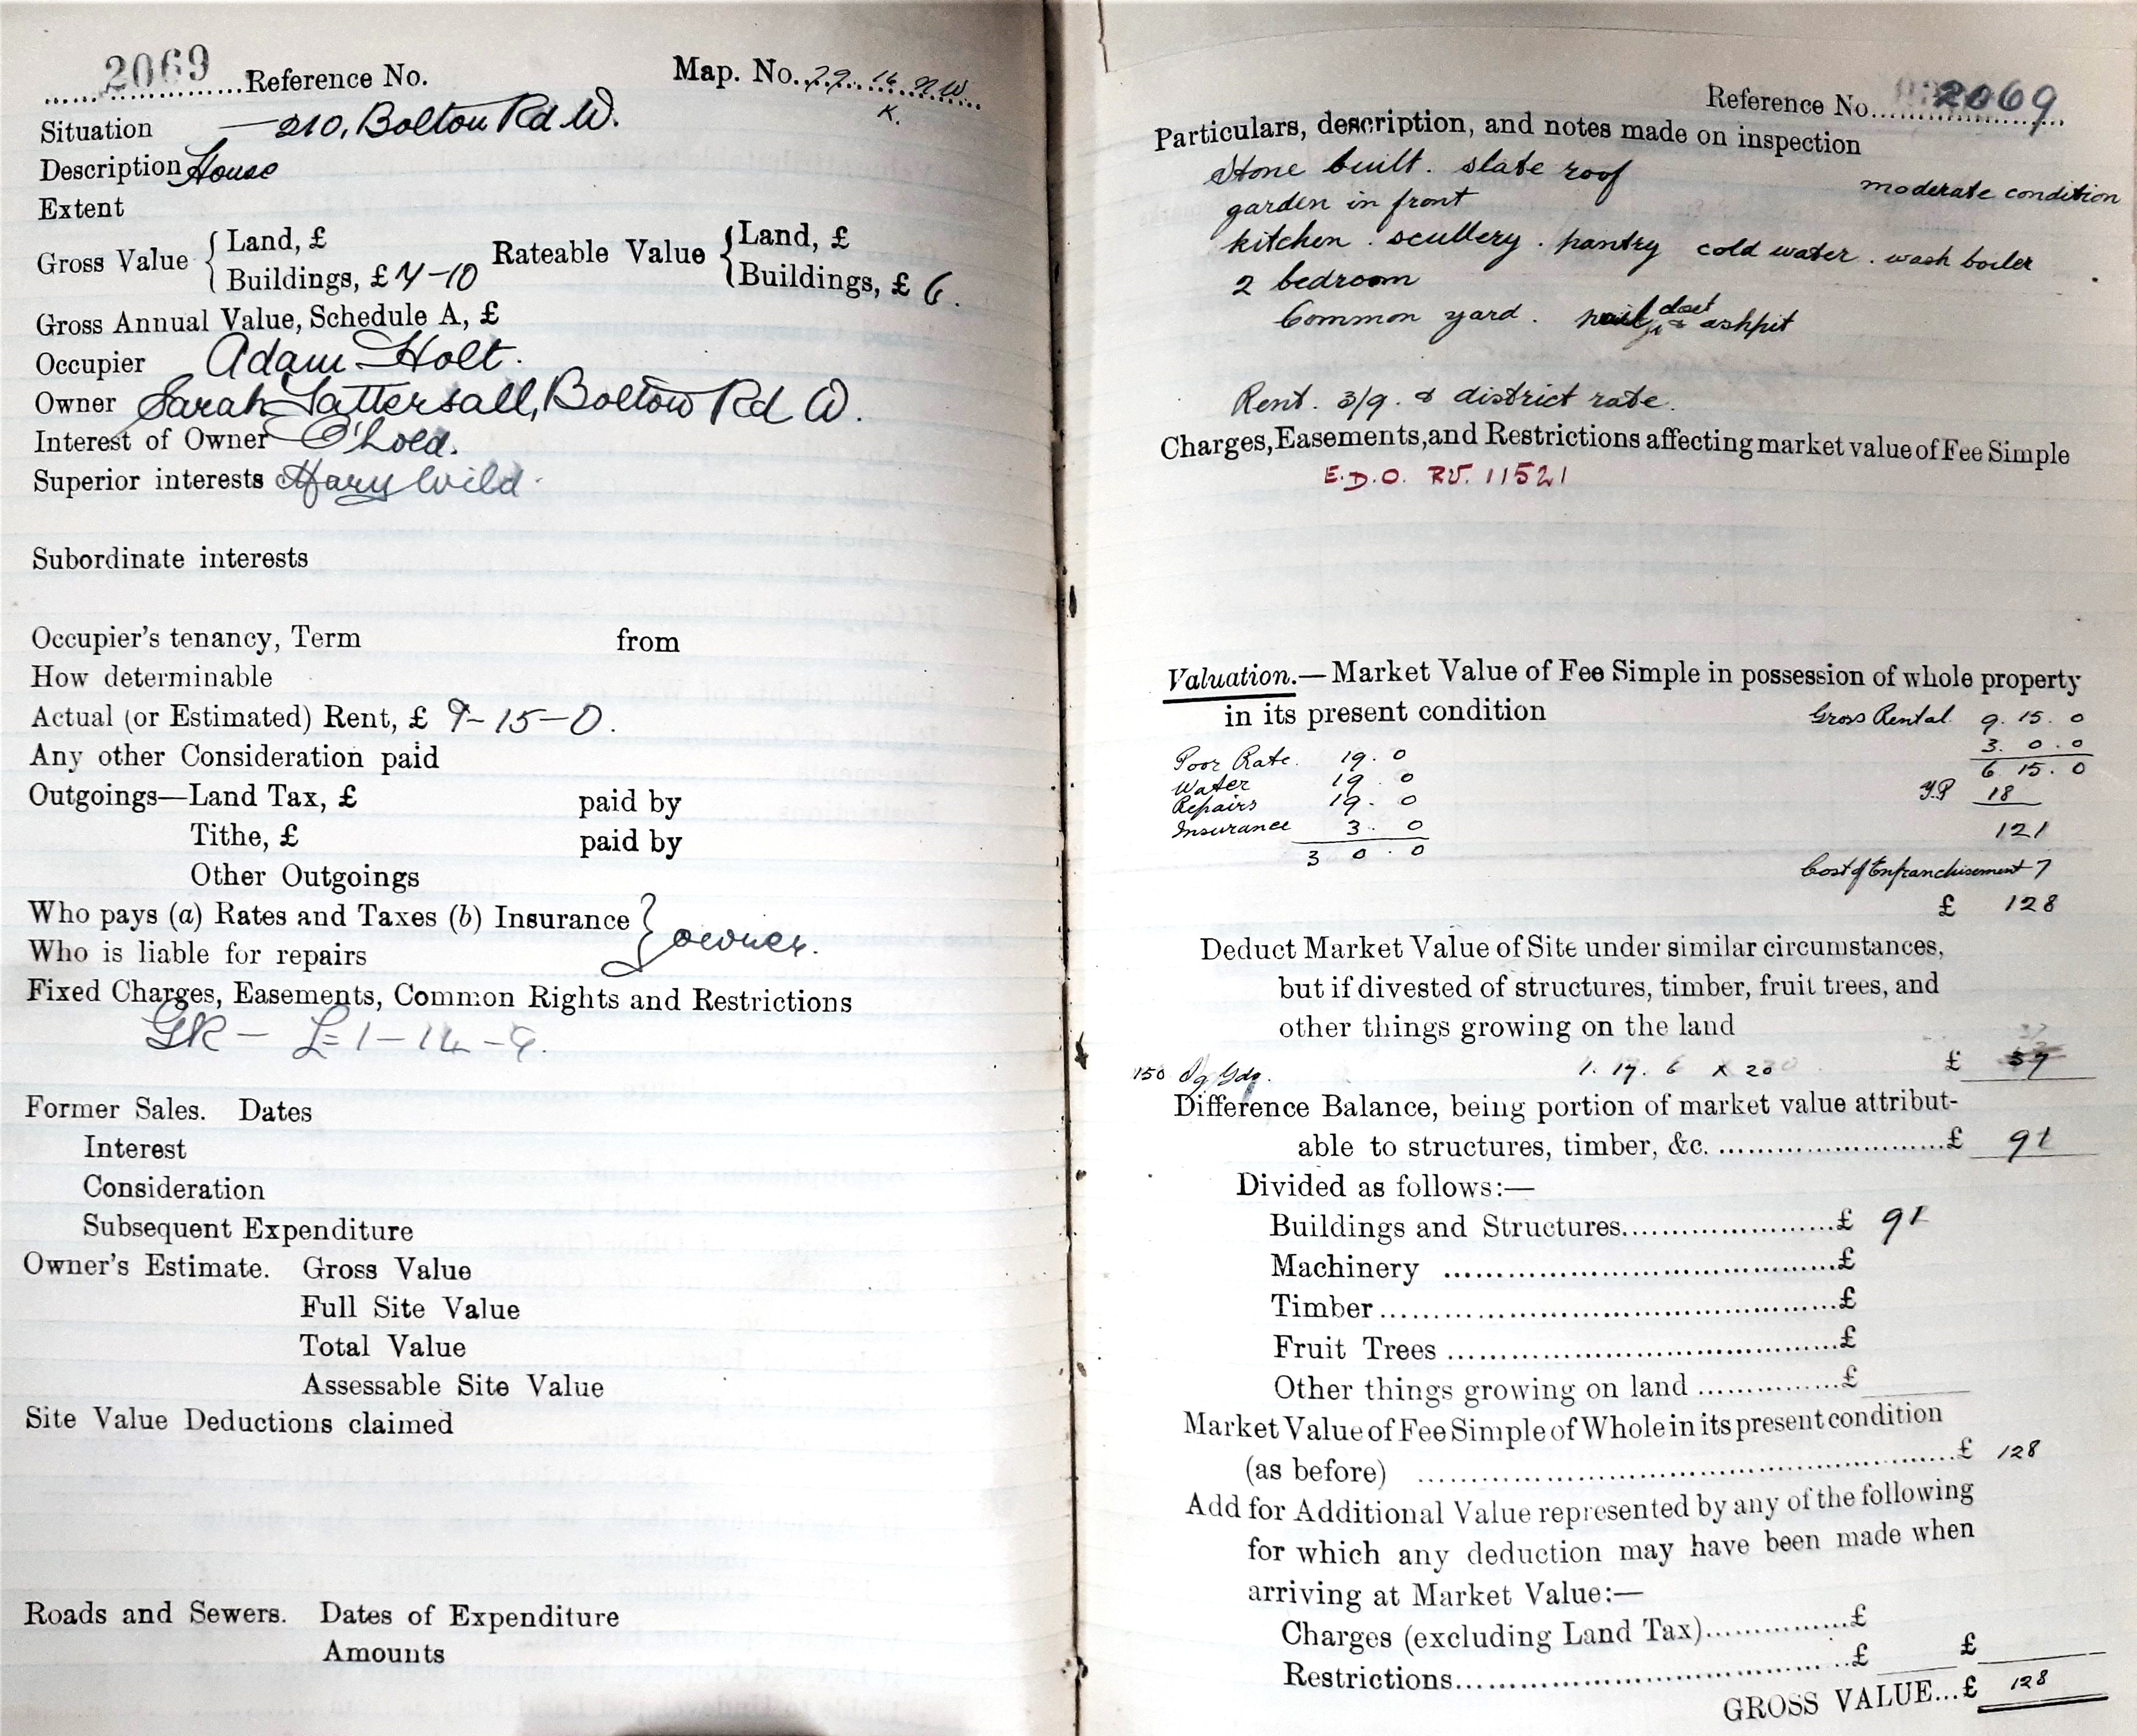 2069 Reference No. Map. No. 79. 16 NW
K.
Situation — 210, Bolton Rd W.
Description House
Extent
Gross Value { Land, £ Rateable Value { Land, £
Buildings, £ 7-10 Buildings, £ 6.
Gross Annual Value, Schedule A, £
Occupier Adam Holt.
Owner Sarah Tattersall, Bolton Rd W.
Interest of Owner C'hold.
Superior interests Mary Wild.
Subordinate interests
Occupier's tenancy, Term from
How determinable
Actual (or Estimated) Rent, £ 9-15-0.
Any other Consideration paid
Outgoings—Land Tax, £ paid by
Tithe, £ paid by
Other Outgoings
Who pays (a) Rates and Taxes (b) Insurance } owner.
Who is liable for repairs
Fixed Charges, Easements, Common Rights and Restrictions
GR — £1-14-9.
Former Sales. Dates
Interest
Consideration
Subsequent Expenditure
Owner's Estimate. Gross Value
Full Site Value
Total Value
Assessable Site Value
Site Value Deductions claimed
Roads and Sewers. Dates of Expenditure
Amounts
Reference No. 2069
Particulars, description, and notes made on inspection
Stone built. slate roof moderate condition
garden in front
kitchen. scullery. pantry cold water. wash boiler
2 bedroom
Common yard. pail closet & ashpit
Rent. 3/9. & district rate.
Charges, Easements, and Restrictions affecting market value of Fee Simple
E.D.O. RV. 11521
Valuation.—Market Value of Fee Simple in possession of whole property
in its present condition Gross Rental 9. 15. 0
Poor Rate. 19. 0 3. 0. 0
Water 19. 0 6. 15. 0
Repairs 19. 0 Y.P 18
Insurance 3. 0 121
3 0. 0
Cost of Enfranchisement 7
£ 128
Deduct Market Value of Site under similar circumstances,
but if divested of structures, timber, fruit trees, and
other things growing on the land
150 Sq Yds. 1. 17. 6 x 20 £ 37
Difference Balance, being portion of market value attribut-
able to structures, timber, &c. £ 91
Divided as follows:—
Buildings and Structures £ 91
Machinery £
Timber £
Fruit Trees £
Other things growing on land £
Market Value of Fee Simple of Whole in its present condition
(as before) £ 128
Add for Additional Value represented by any of the following
for which any deduction may have been made when
arriving at Market Value:—
Charges (excluding Land Tax) £
Restrictions £ £
GROSS VALUE...£ 128